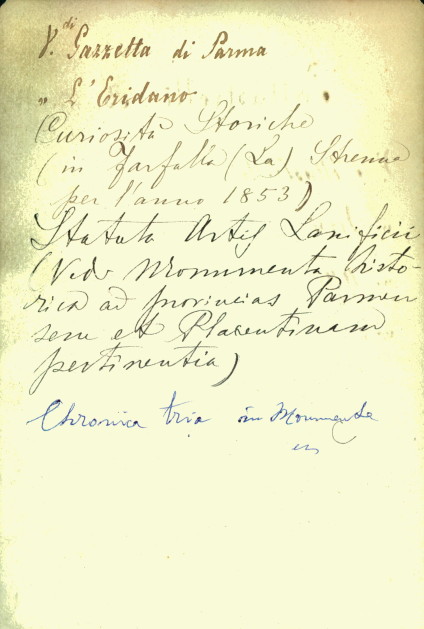 V. di Gazzetta di Parma
„ L'Eridano
Curiosità Storiche
(in Farfalla (La) Strenna
per l'anno 1853)
Statuta Artis Lanificii
(Vedi Monumenta histo-
rica ad provincias Parmen
sem et Placentinam
pertinentia)
Chronica tria in Monumenta